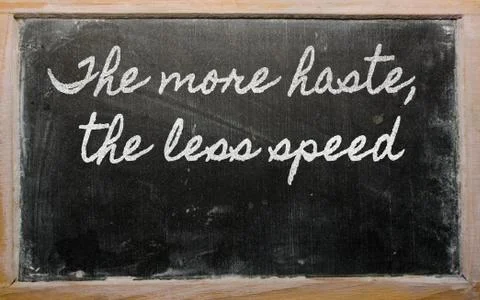 The more haste,
the less speed